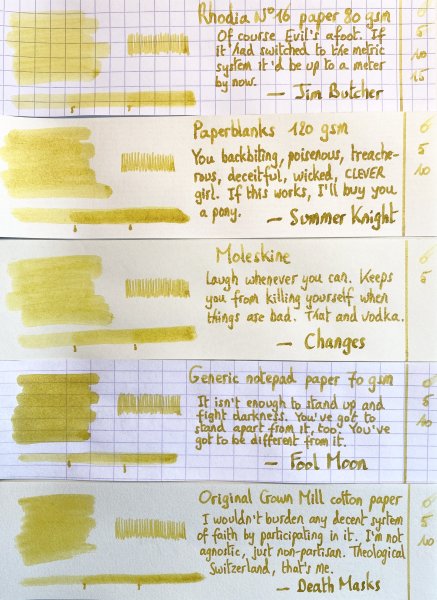 Rhodia N°16 paper 80 gsm
Of course Evil's afoot. If
it had switched to the metric
system it'd be up to a meter
by now.
— Jim Butcher
0
5
10
15
Paperblanks 120 gsm
You backbiting, poisenous, treache-
rous, deceitful, wicked, CLEVER
girl. If this works, I'll buy you
a pony.
— Summer Knight
0
5
10
Moleskine
Laugh whenever you can. Keeps
you from killing yourself when
things are bad. That and vodka.
— Changes
0
5
Generic notepad paper 70 gsm
It isn't enough to stand up and
fight darkness. You've got to
stand apart from it, too. You've
got to be different from it.
— Fool Moon
0
5
10
Original Crown Mill cotton paper
I wouldn't burden any decent system
of faith by participating in it. I'm not
agnostic, just non-partisan. Theological
Switzerland, that's me.
— Death Masks
0
5
10